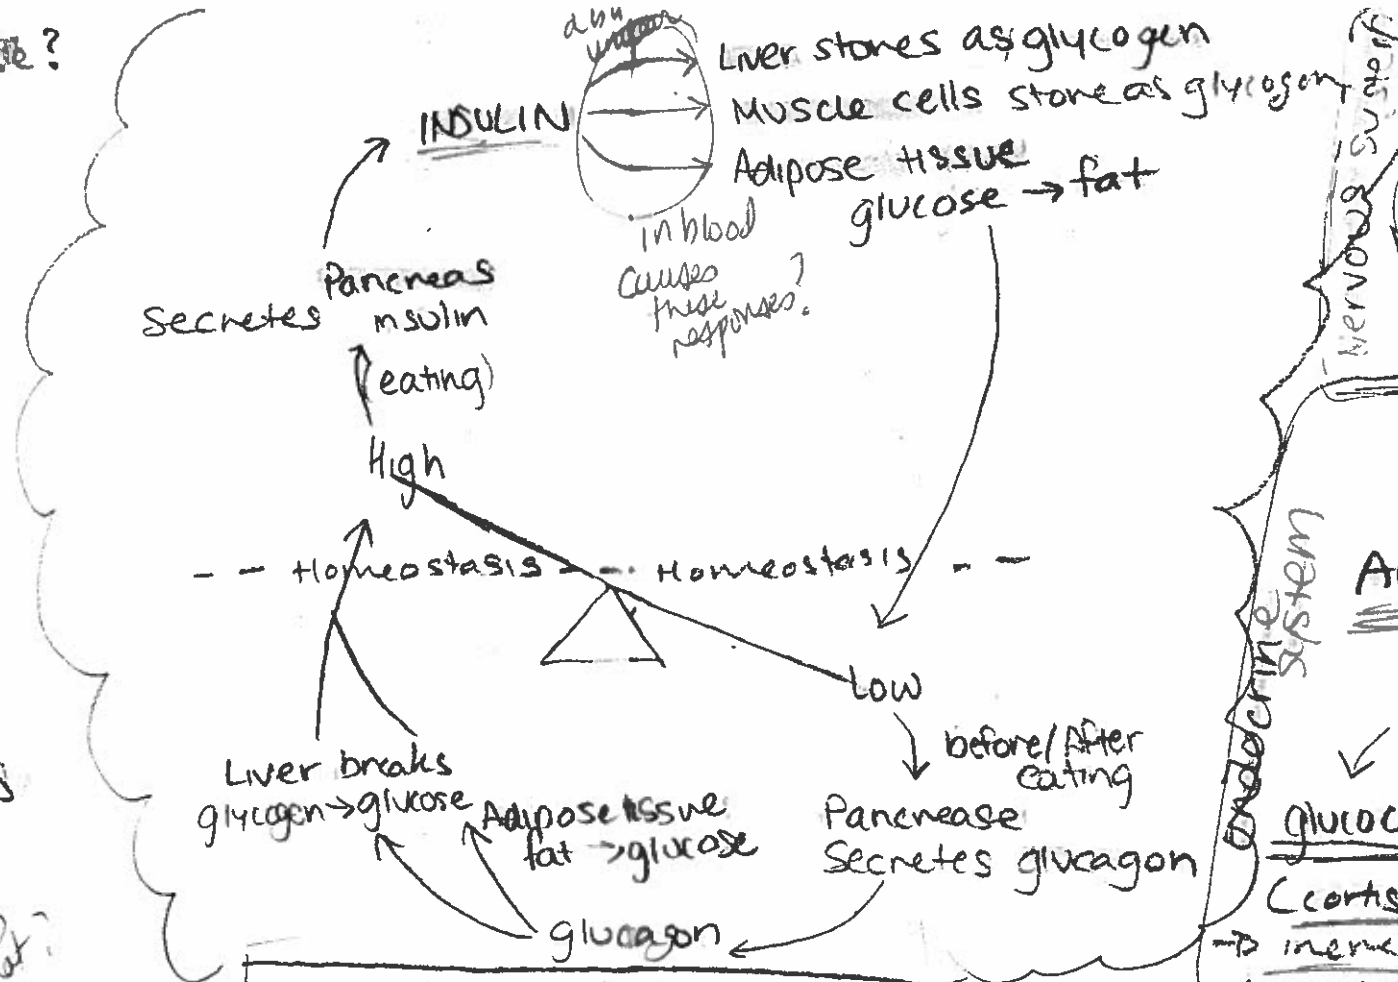 ?
INSULIN
Liver stores as glycogen
Muscle cells store as glycogen
Adipose tissue
glucose → fat
in blood
causes
these
responses?
Pancreas
Secretes insulin
(eating)
High
-- Homeostasis -- Homeostasis --
Low
before/After
eating
Pancrease
Secretes glucagon
glucagon
Liver breaks
glycogen→glucose
Adipose tissue
fat → glucose
Nervous
endocrine
system
glucoc
(cortis